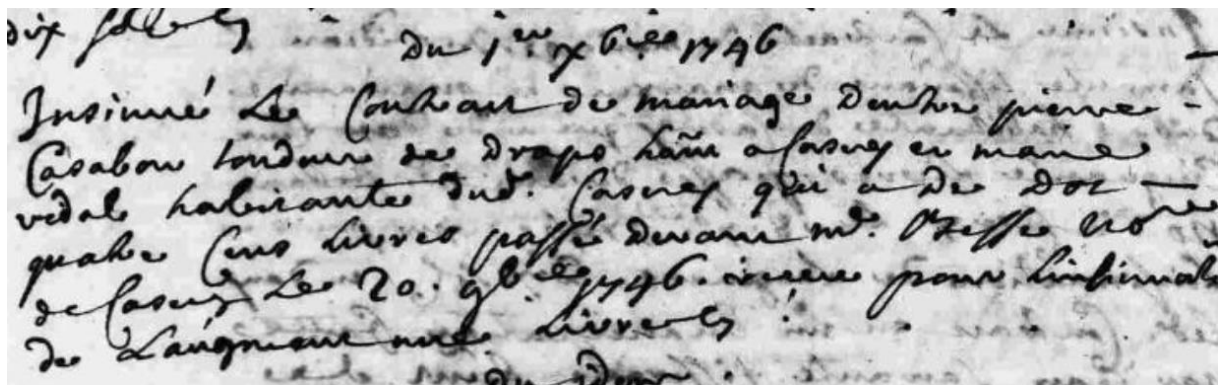 dix sols
du 1er xbre 1746
Insinué Le Contract de mariage dentre pierre
Casabou tondeur de draps hant a Castres et marie
vidal habitante dud. Castres qui a de dot
quatre Cens livres passé devant me. Besse Nore
de Castres Le 20. 9bre 1746. receu pour Linsinuaon
de Laugment une Livre
du idem